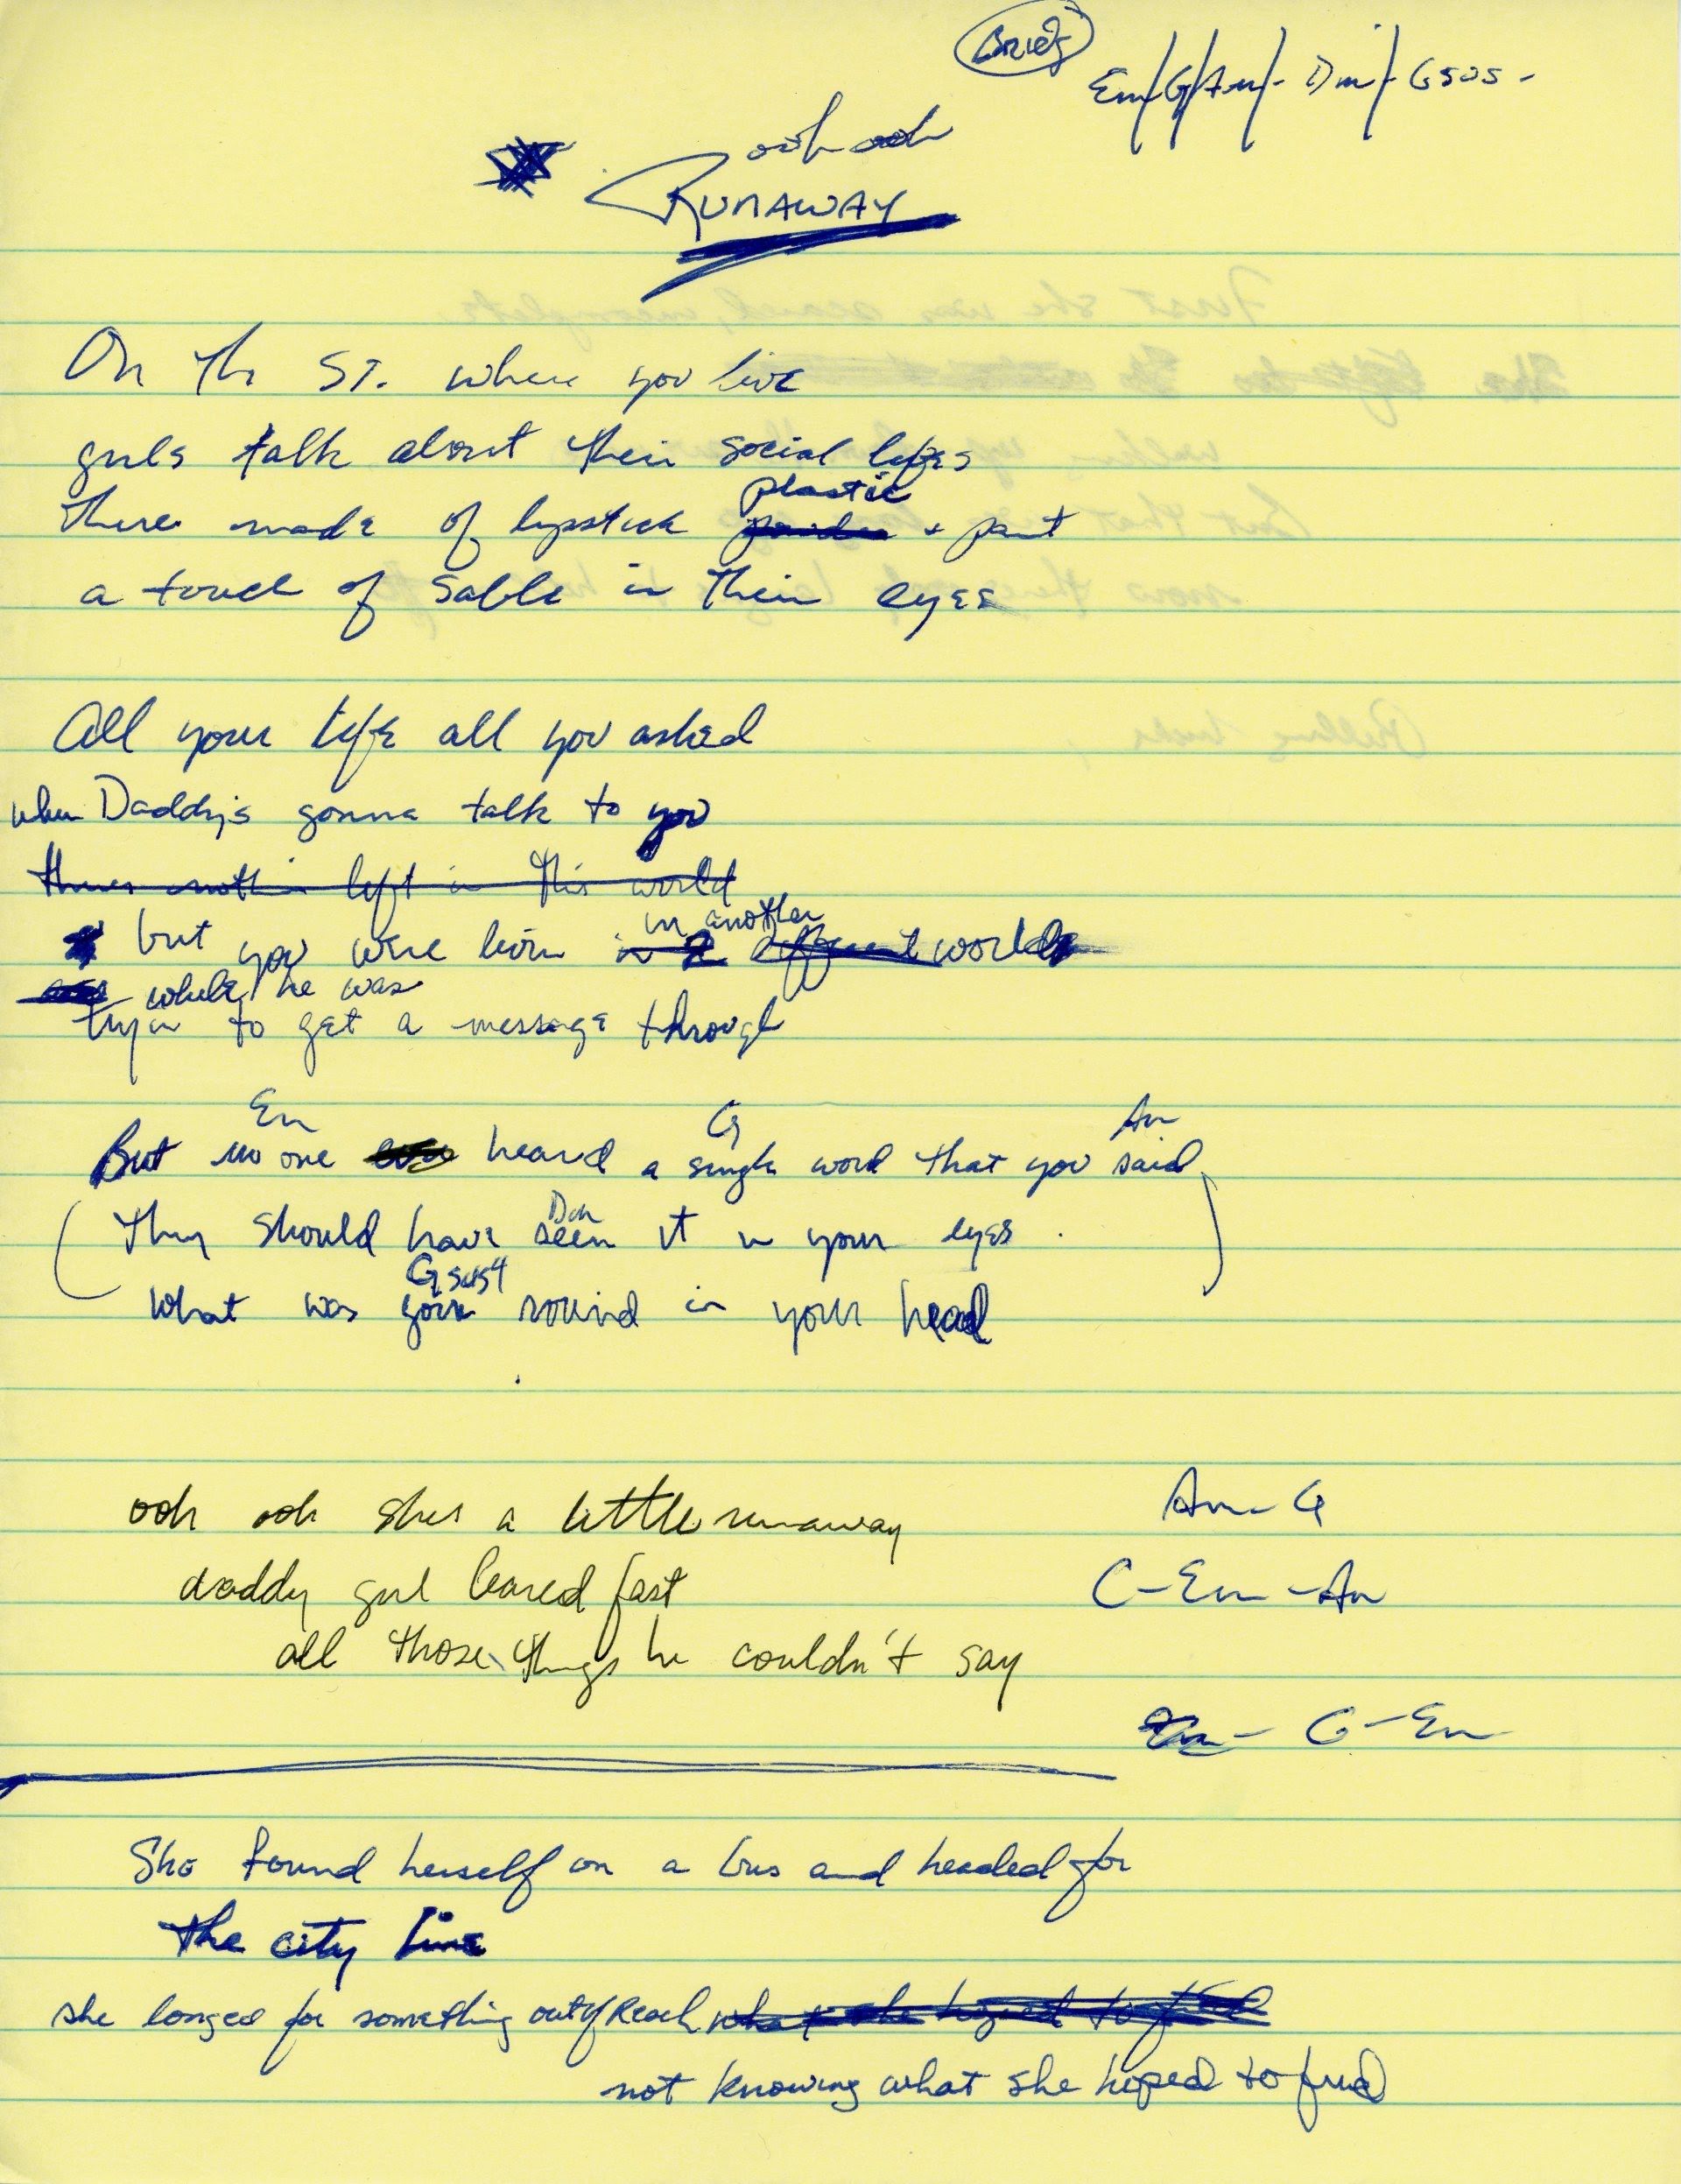 Bridg
Em/G/Am/- Dm/- Gsus-
ooh ooh
RUNAWAY
On the ST. where you live
girls talk about their social lifes
there made of lipstick plastic powder + paint
a touch of sable in their eyes
All your life all you asked
when Daddy's gonna talk to you
theres nothin left in this world
but you were livin in a different in another world
while he was
tryin to get a message through
Em G Am
But no one ever heard a single word that you said
They should have seen it in your eyes
Dm
Gsus4
What was goin round in your head
ooh ooh shes a little runaway
Am - G
daddy girl leared fast
C - Em - Am
all those things he couldn't say
G - Em
She found herself on a bus and headed for
the city line
she longed for something out of Reach what she hoped to find
not knowing what she hoped to find